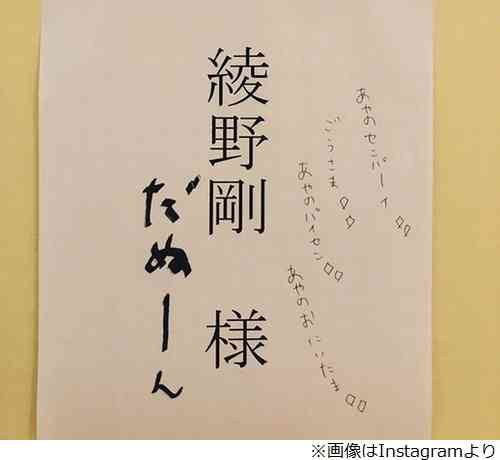 あやのセンパーイ♢♢
ごうさま♢♢
あやのパイセン♢♢
あやのおにいたま♢♢
綾野剛 様
だぬーん
※画像はInstagramより